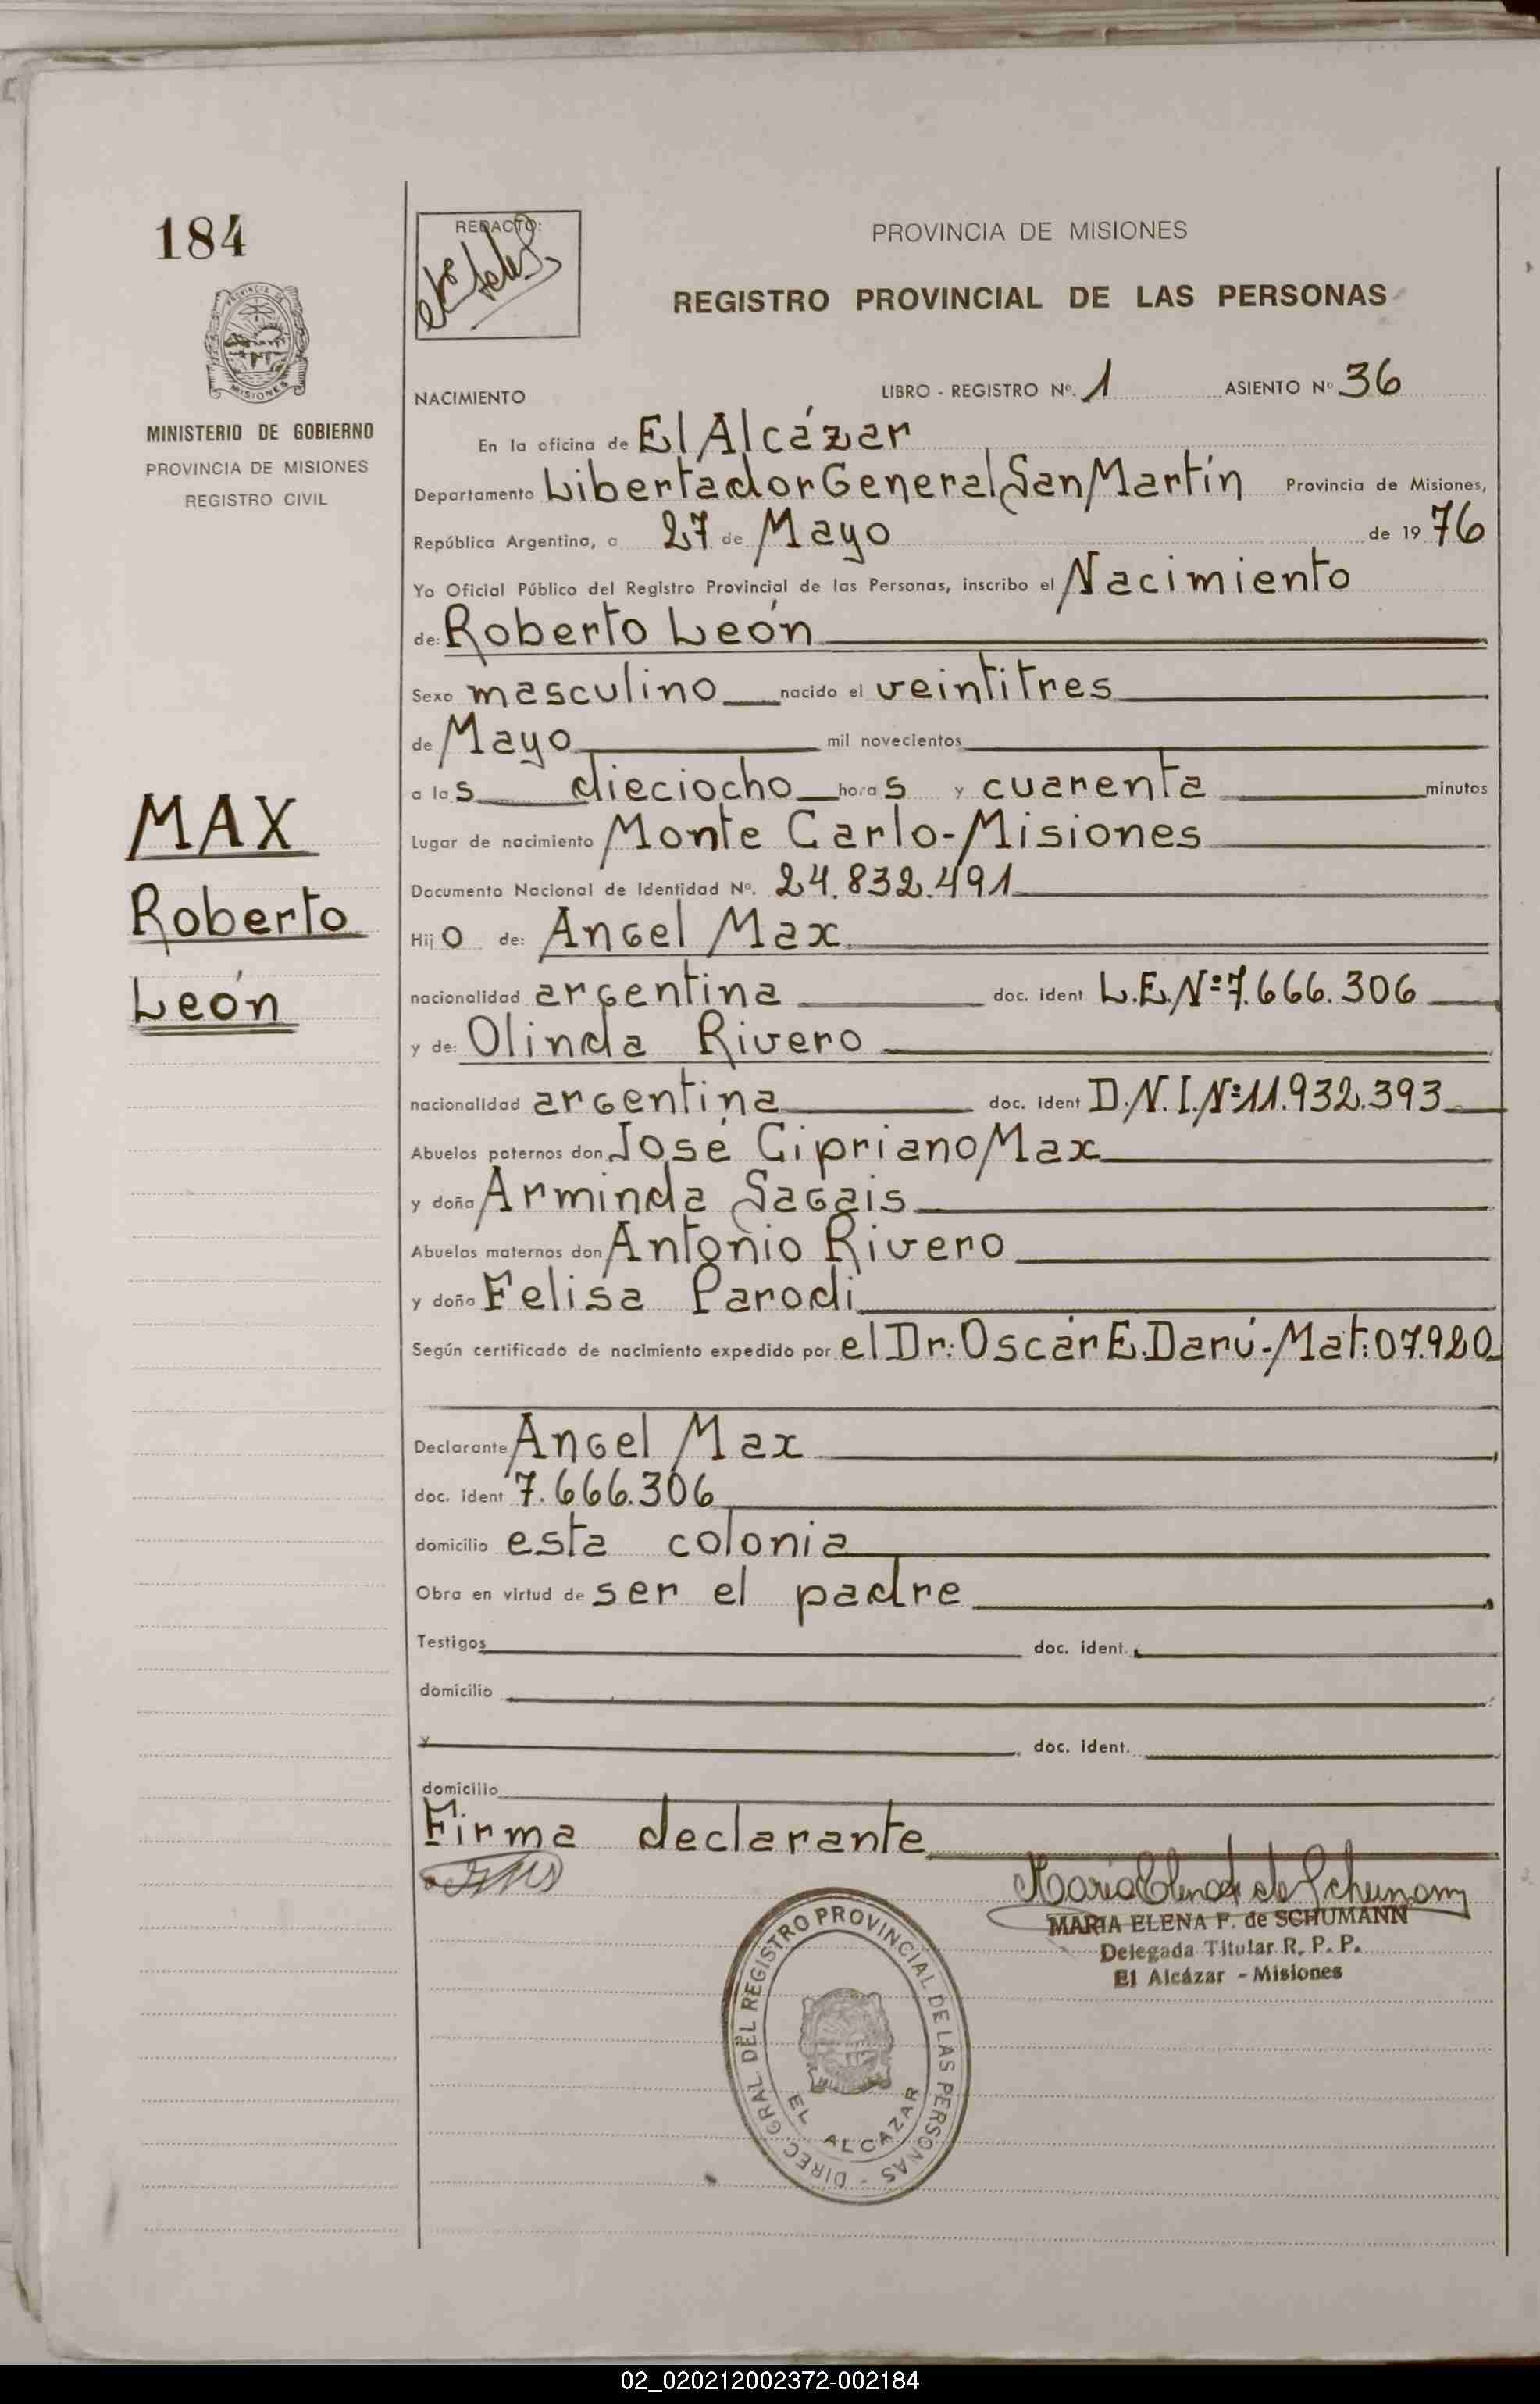 184
PROVINCIA DE MISIONES
MINISTERIO DE GOBIERNO
PROVINCIA DE MISIONES
REGISTRO CIVIL
MAX
Roberto
León
REDACTO:
PROVINCIA DE MISIONES
REGISTRO PROVINCIAL DE LAS PERSONAS
NACIMIENTO LIBRO - REGISTRO Nº. 1 ASIENTO Nº 36
En la oficina de El Alcázar
Departamento Libertador General San Martín Provincia de Misiones,
República Argentina, a 27 de Mayo de 1976
Yo Oficial Público del Registro Provincial de las Personas, inscribo el Nacimiento
de: Roberto León
Sexo masculino nacido el veintitres
de Mayo mil novecientos
a las dieciocho horas y cuarenta minutos
Lugar de nacimiento Monte Carlo-Misiones
Documento Nacional de Identidad Nº. 24.832.491
Hijo de: Angel Max
nacionalidad argentina doc. ident L.E.Nº:7.666.306
y de: Olinda Rivero
nacionalidad argentina doc. ident D.N.I.Nº:11.932.393
Abuelos paternos don José Cipriano Max
y doña Arminda Sagais
Abuelos maternos don Antonio Rivero
y doña Felisa Parodi
Según certificado de nacimiento expedido por el Dr: Oscár E. Darú-Mat:07.920
Declarante Angel Max
doc. ident 7.666.306
domicilio esta colonia
Obra en virtud de ser el padre
Testigos doc. ident.
domicilio
y doc. ident.
domicilio
Firma declarante
MARIA ELENA F. de SCHUMANN
Delegada Titular R. P. P.
El Alcázar - Misiones
DIREC GRAL. DEL REGISTRO PROVINCIAL DE LAS PERSONAS -
EL ALCAZAR
02_020212002372-002184